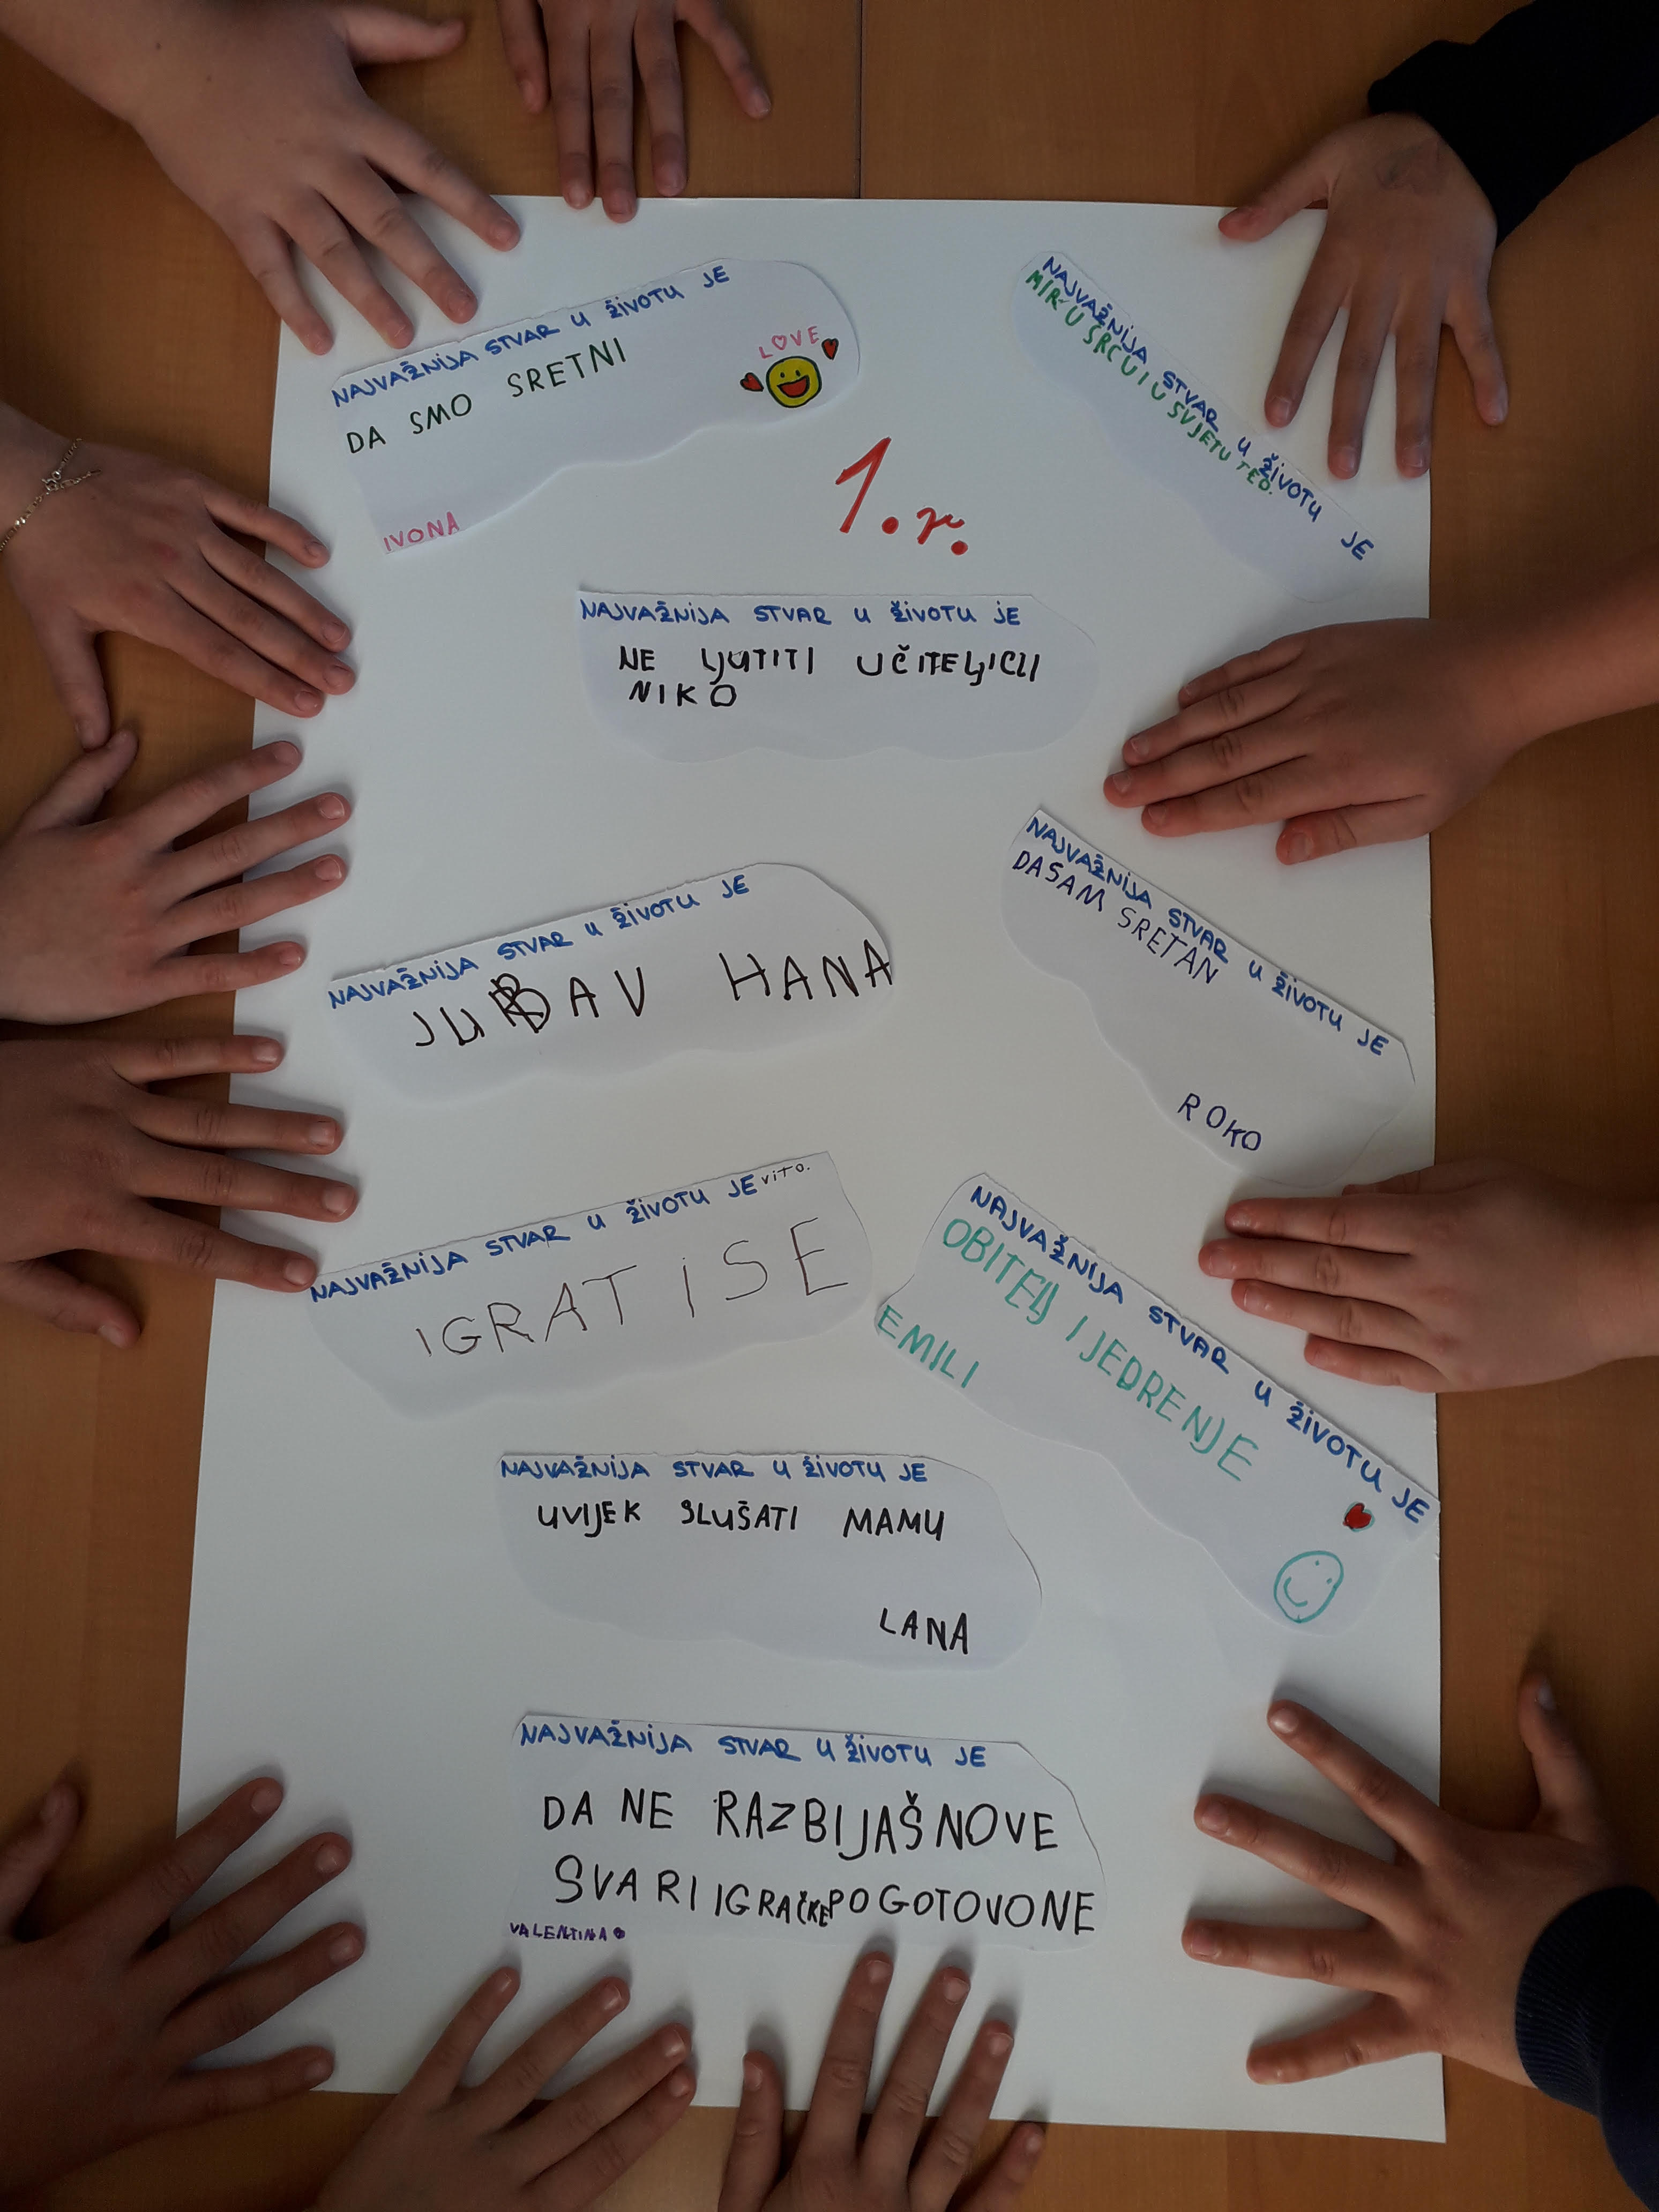 NAJVAŽNIJA STVAR U ŽIVOTU JE
DA SMO SRETNI
LOVE
IVONA
NAJVAŽNIJA STVAR U ŽIVOTU JE
MIR U SRCU I U SVJETU TEO.
1. r.
NAJVAŽNIJA STVAR U ŽIVOTU JE
NE LJUTITI UČITELJICU
NIKO
NAJVAŽNIJA STVAR U ŽIVOTU JE
DA SAM SRETAN
ROKO
NAJVAŽNIJA STVAR U ŽIVOTU JE
JUBAV HANA
NAJVAŽNIJA STVAR U ŽIVOTU JE vito.
IGRATI SE
NAJVAŽNIJA STVAR U ŽIVOTU JE
OBITELJ I JEDRENJE
EMILI
NAJVAŽNIJA STVAR U ŽIVOTU JE
UVIJEK SLUŠATI MAMU
LANA
NAJVAŽNIJA STVAR U ŽIVOTU JE
DA NE RAZBIJAŠ NOVE
SVARI IGRAČKE POGOTOVO NE
VALENTINA